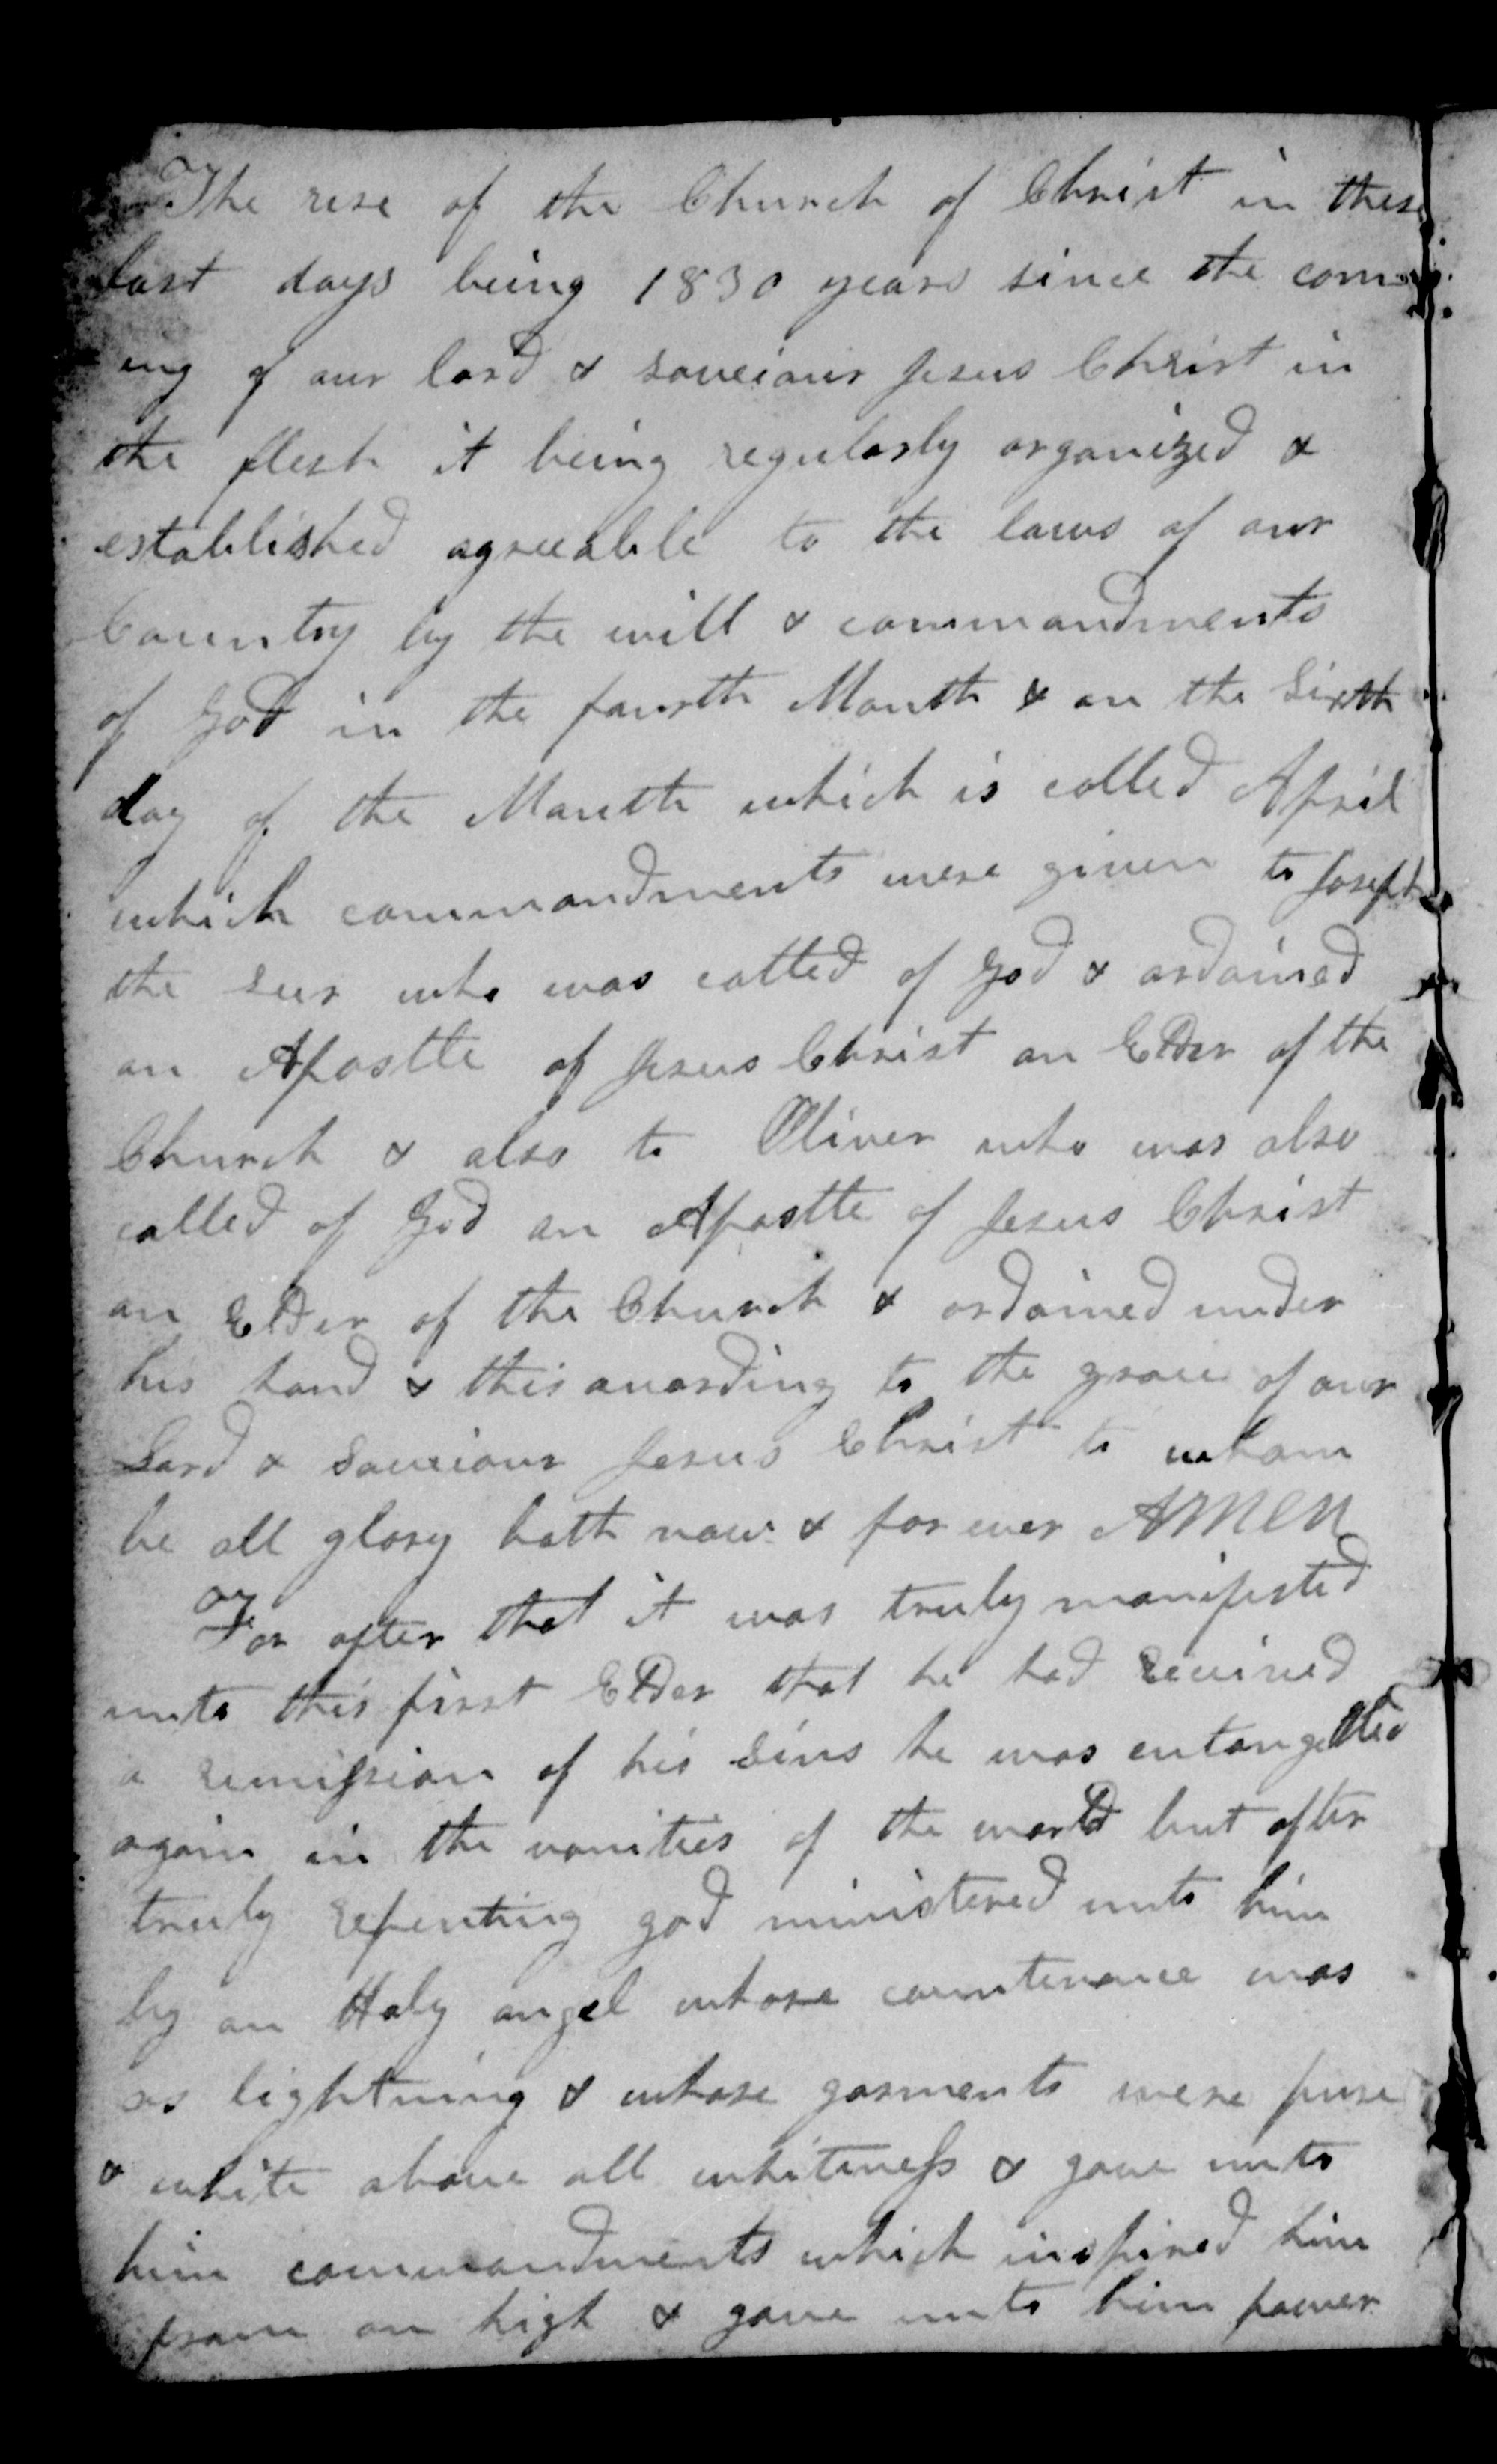 The rise of the Church of Christ in these
last days being 1830 years since the com-
ing of our lord & saveiour Jesus Christ in
the flesh it being regularly organized &
established agreeable to the laws of our
Country by the will & commandments
of God in the fourth Month & on the Sixth
day of the Month which is called April
which commandments were given to Joseph
the seer who was called of God & ordained
an Apostle of Jesus Christ an Elder of the
Church & also to Oliver who was also
called of God an Apostle of Jesus Christ
an Elder of the Church & ordained under
his hand & this acording to the grace of our
Lord & Saveiour Jesus Christ to whom
be all glory both now & for ever AMEN
For after that it was truly manifested
unto this first Elder that he had received
a remission of his sins he was entangelled
again in the vanities of the world but after
truly repenting god ministered unto him
by an Holy angel whose countenance was
as lightning & whose garments were pure
& white above all whiteness & gave unto
him commandments which inspired him
from on high & gave unto him power